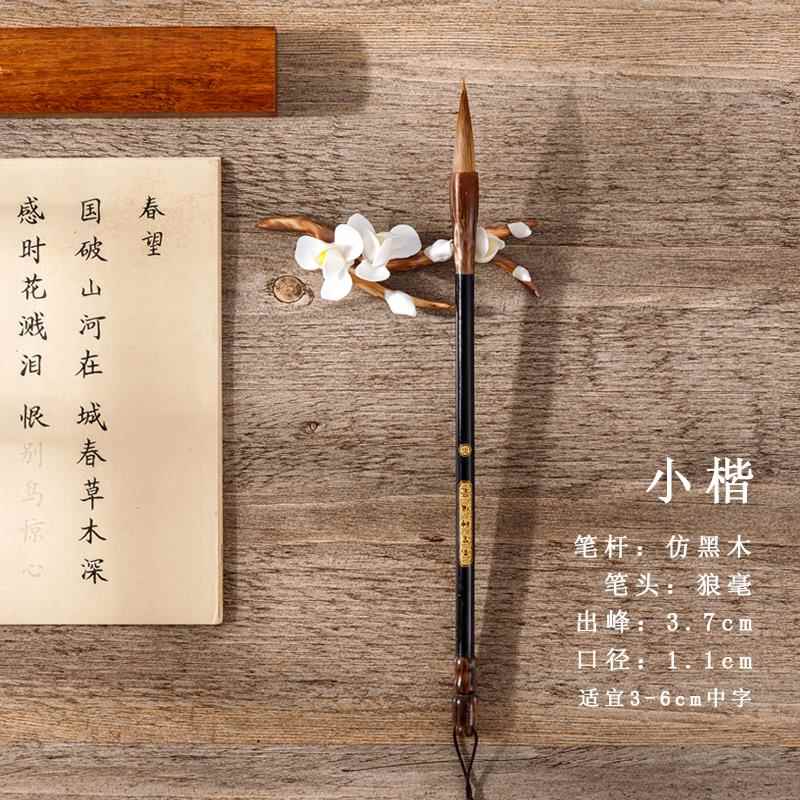 春望
国破山河在 城春草木深
感时花溅泪 恨别鸟惊心
小楷
笔杆：仿黑木
笔头：狼毫
出峰：3.7cm
口径：1.1cm
适宜3-6cm中字